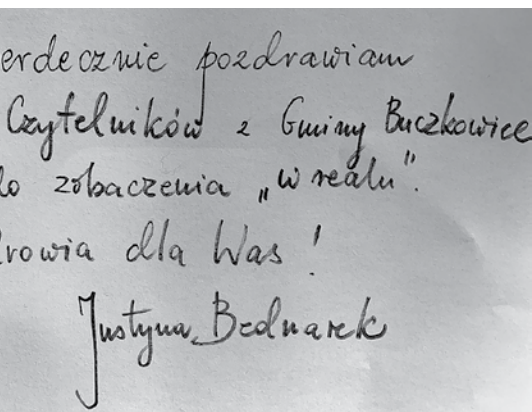 erdecznie pozdrawiam
Czytelników z Gminy Buczkowice
do zobaczenia „w realu".
rowia dla Was !
Justyna Bednarek